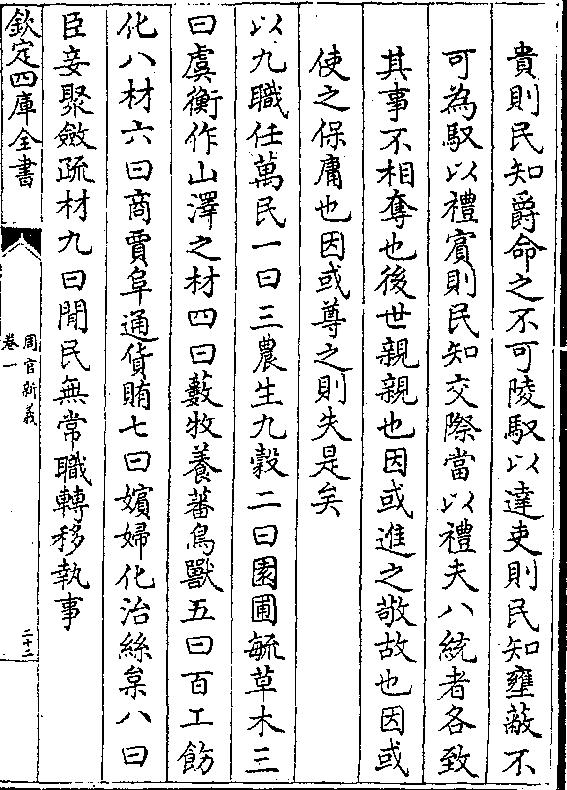 貴則民知爵命之不可陵馭以達吏則民知壅蔽不
可為馭以禮賓則民知交際當以禮夫八統者各致
其事不相奪也後世親親也因或進之敬故也因或
使之保庸也因或尊之則失是矣
以九職任萬民一曰三農生九穀二曰園圃毓草木三
曰虞衡作山澤之材四曰藪牧養蕃鳥獸五曰百工飭
化八材六曰商賈阜通貨賄七曰嬪婦化治絲枲八曰
臣妾聚斂疏材九曰閒民無常職轉移執事
欽定四庫全書
周官新義
卷一
二十二